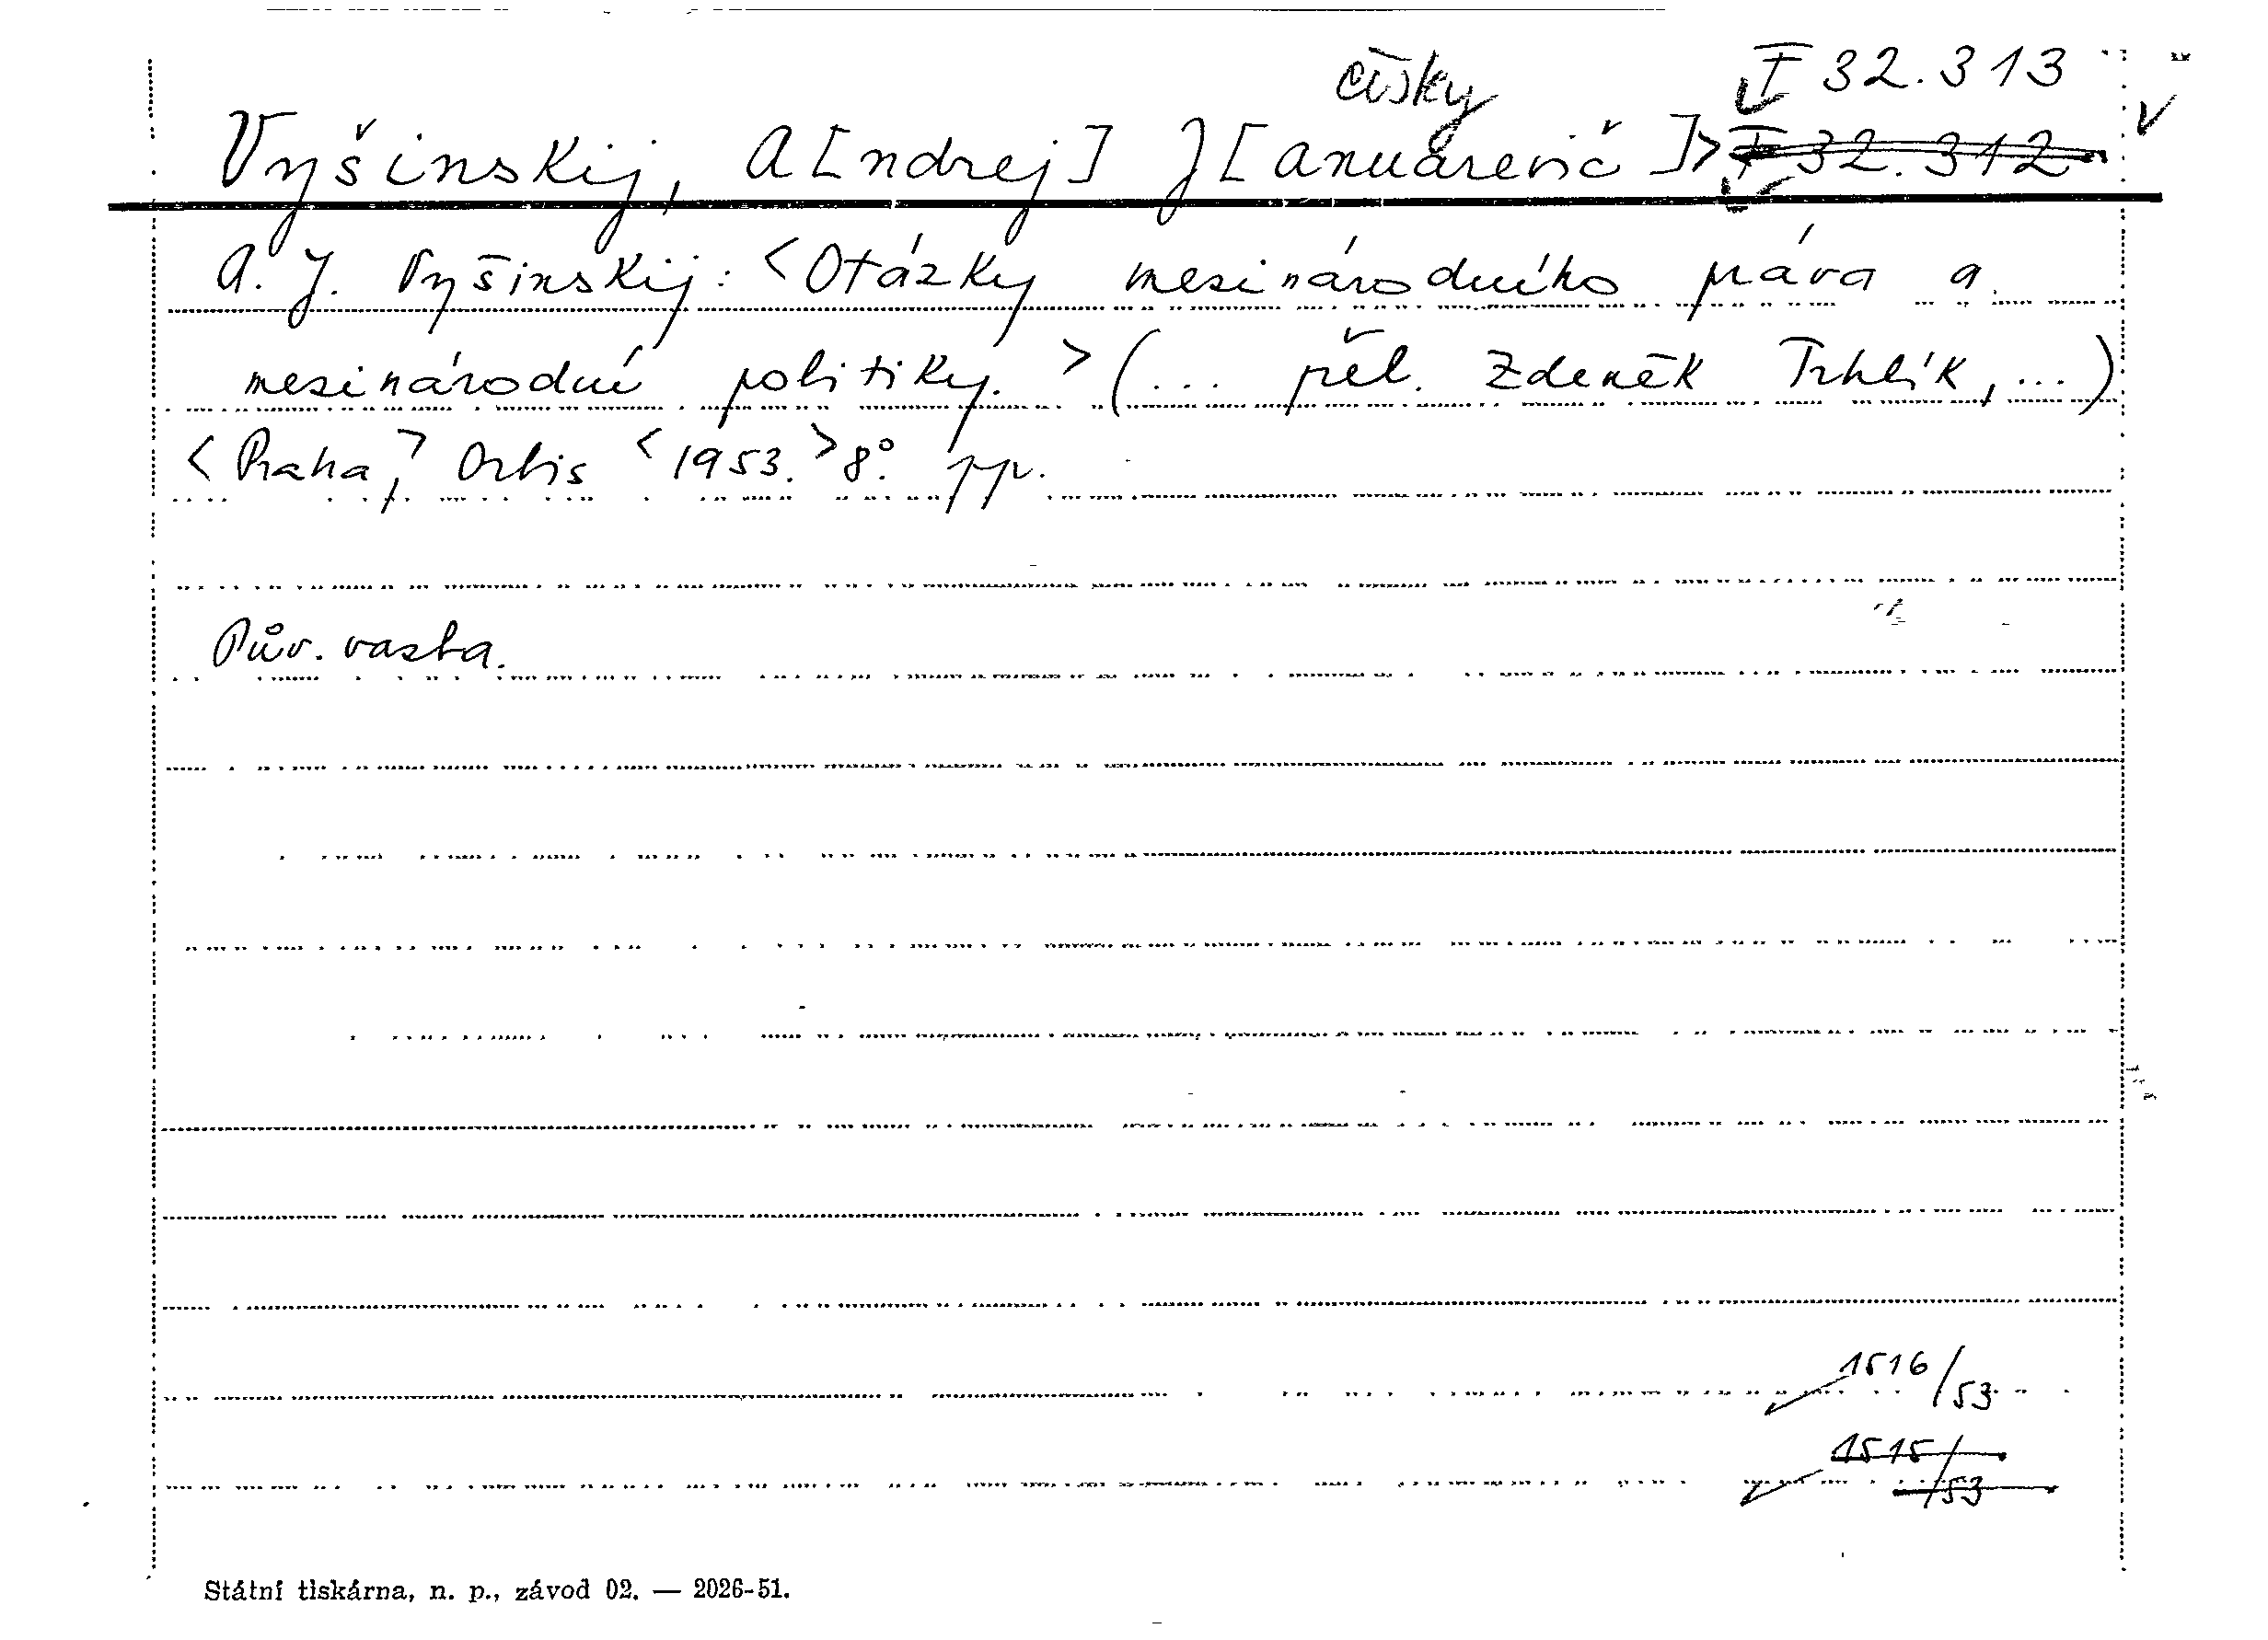 čisky I 32.313
Vyšinskij, A[ndrej] J[anuarevič]> I 32.312
A. J. Vyšinskij: <Otázky mezinárodního práva a
mezinárodní politiky.> (... přel. Zdeněk Trhlík, ...)
<Praha,> Orbis <1953.> 8°. pp.
Pův. vazba.
1516/53
1515/53
Státní tiskárna, n. p., závod 02. — 2026-51.